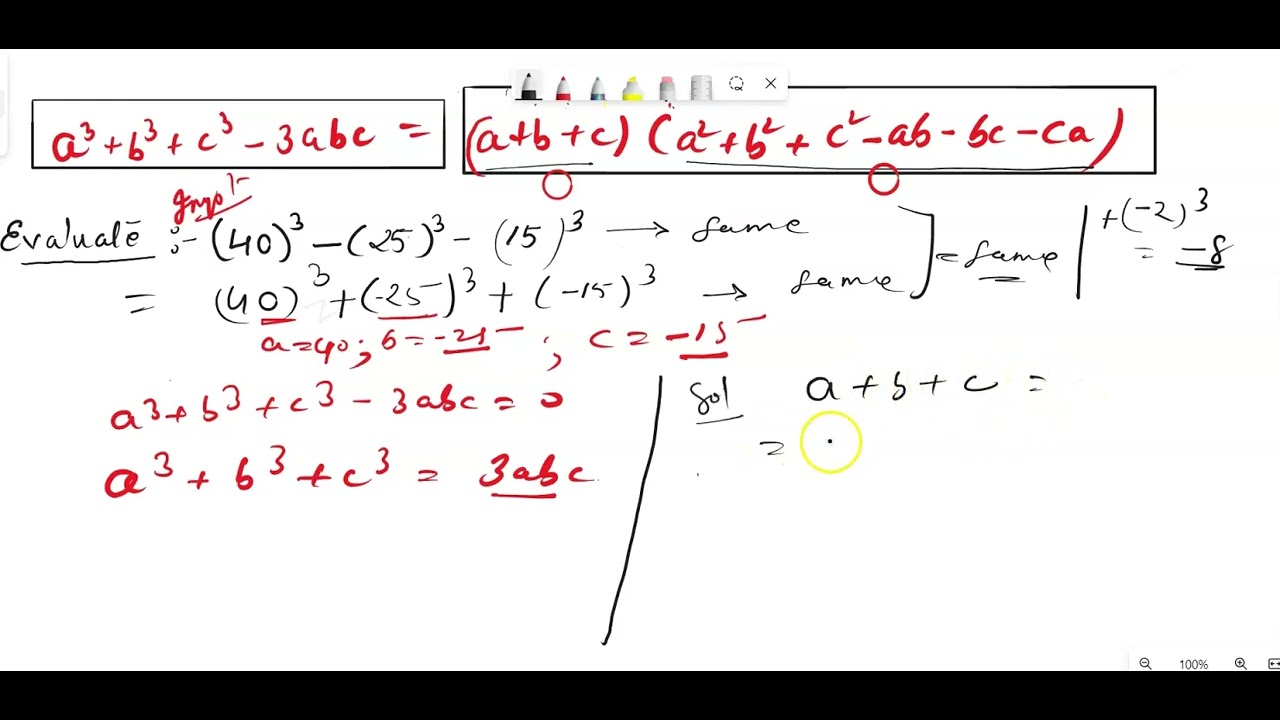 a³ + b³ + c³ - 3abc = (a+b+c) (a² + b² + c² - ab - bc - ca)
Evaluate :- (40)³ - (25)³ - (15)³ → same
= (40)³ + (-25)³ + (-15)³ → same ] = same
+(-2)³
= -8
a=40; b=-25; c=-15
a³ + b³ + c³ - 3abc = 0
a³ + b³ + c³ = 3abc
Sol a + b + c =
=
100%